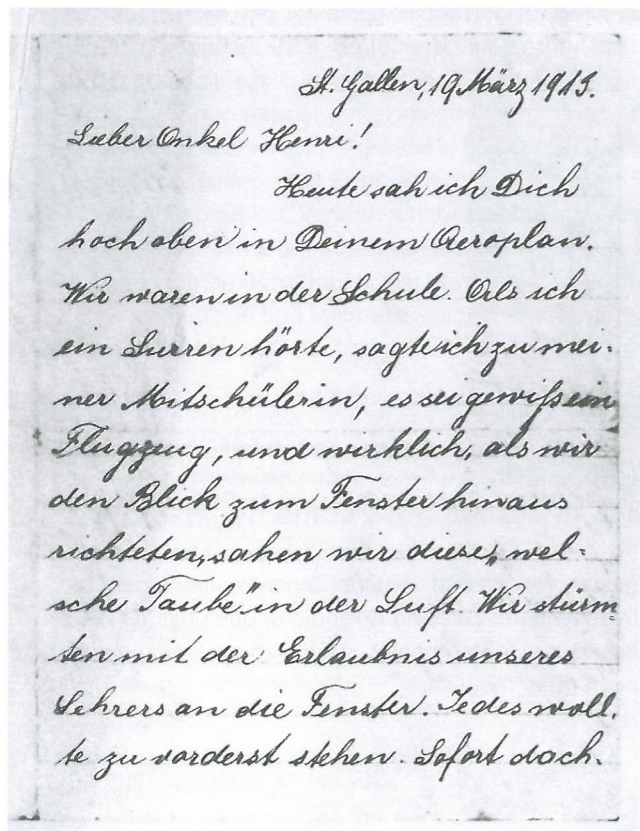 St. Gallen, 19 März 1913.
Lieber Onkel Henri!
Heute sah ich Dich
hoch oben in Deinem Aeroplan.
Wir waren in der Schule. Als ich
ein Surren hörte, sagte ich zu mei-
ner Mitschülerin, es sei gewiß ein
Flugzeug, und wirklich, als wir
den Blick zum Fenster hinaus
richteten, sahen wir diese „wel-
sche Taube" in der Luft. Wir stürm-
ten mit der Erlaubnis unseres
Lehrers an die Fenster. Jedes woll-
te zu vorderst stehen. Sofort dach-